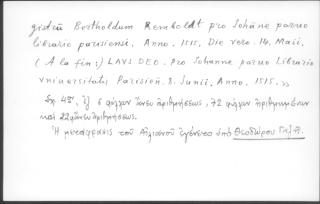 gistrũ Bertholdum Remboldt pro Johãne paruo
librario parisiensi. Anno. 1515, Die vero. 14. Maii.
( A la fin :) LAVS DEO. Pro Johanne paruo Librario
vniuersitatis Parisieñ. 8. Junii, Anno. 1515. »
Σχ. 4ον, ἐξ 6 φύλλων ἄνευ ἀριθμήσεως, 72 φύλλων ἠριθμημένων
καὶ 22 φ. ἄνευ ἀριθμήσεως.
Ἡ μετάφρασις τοῦ Αἰλιανοῦ ἐγένετο ὑπὸ Θεοδώρου Γαζῆ.